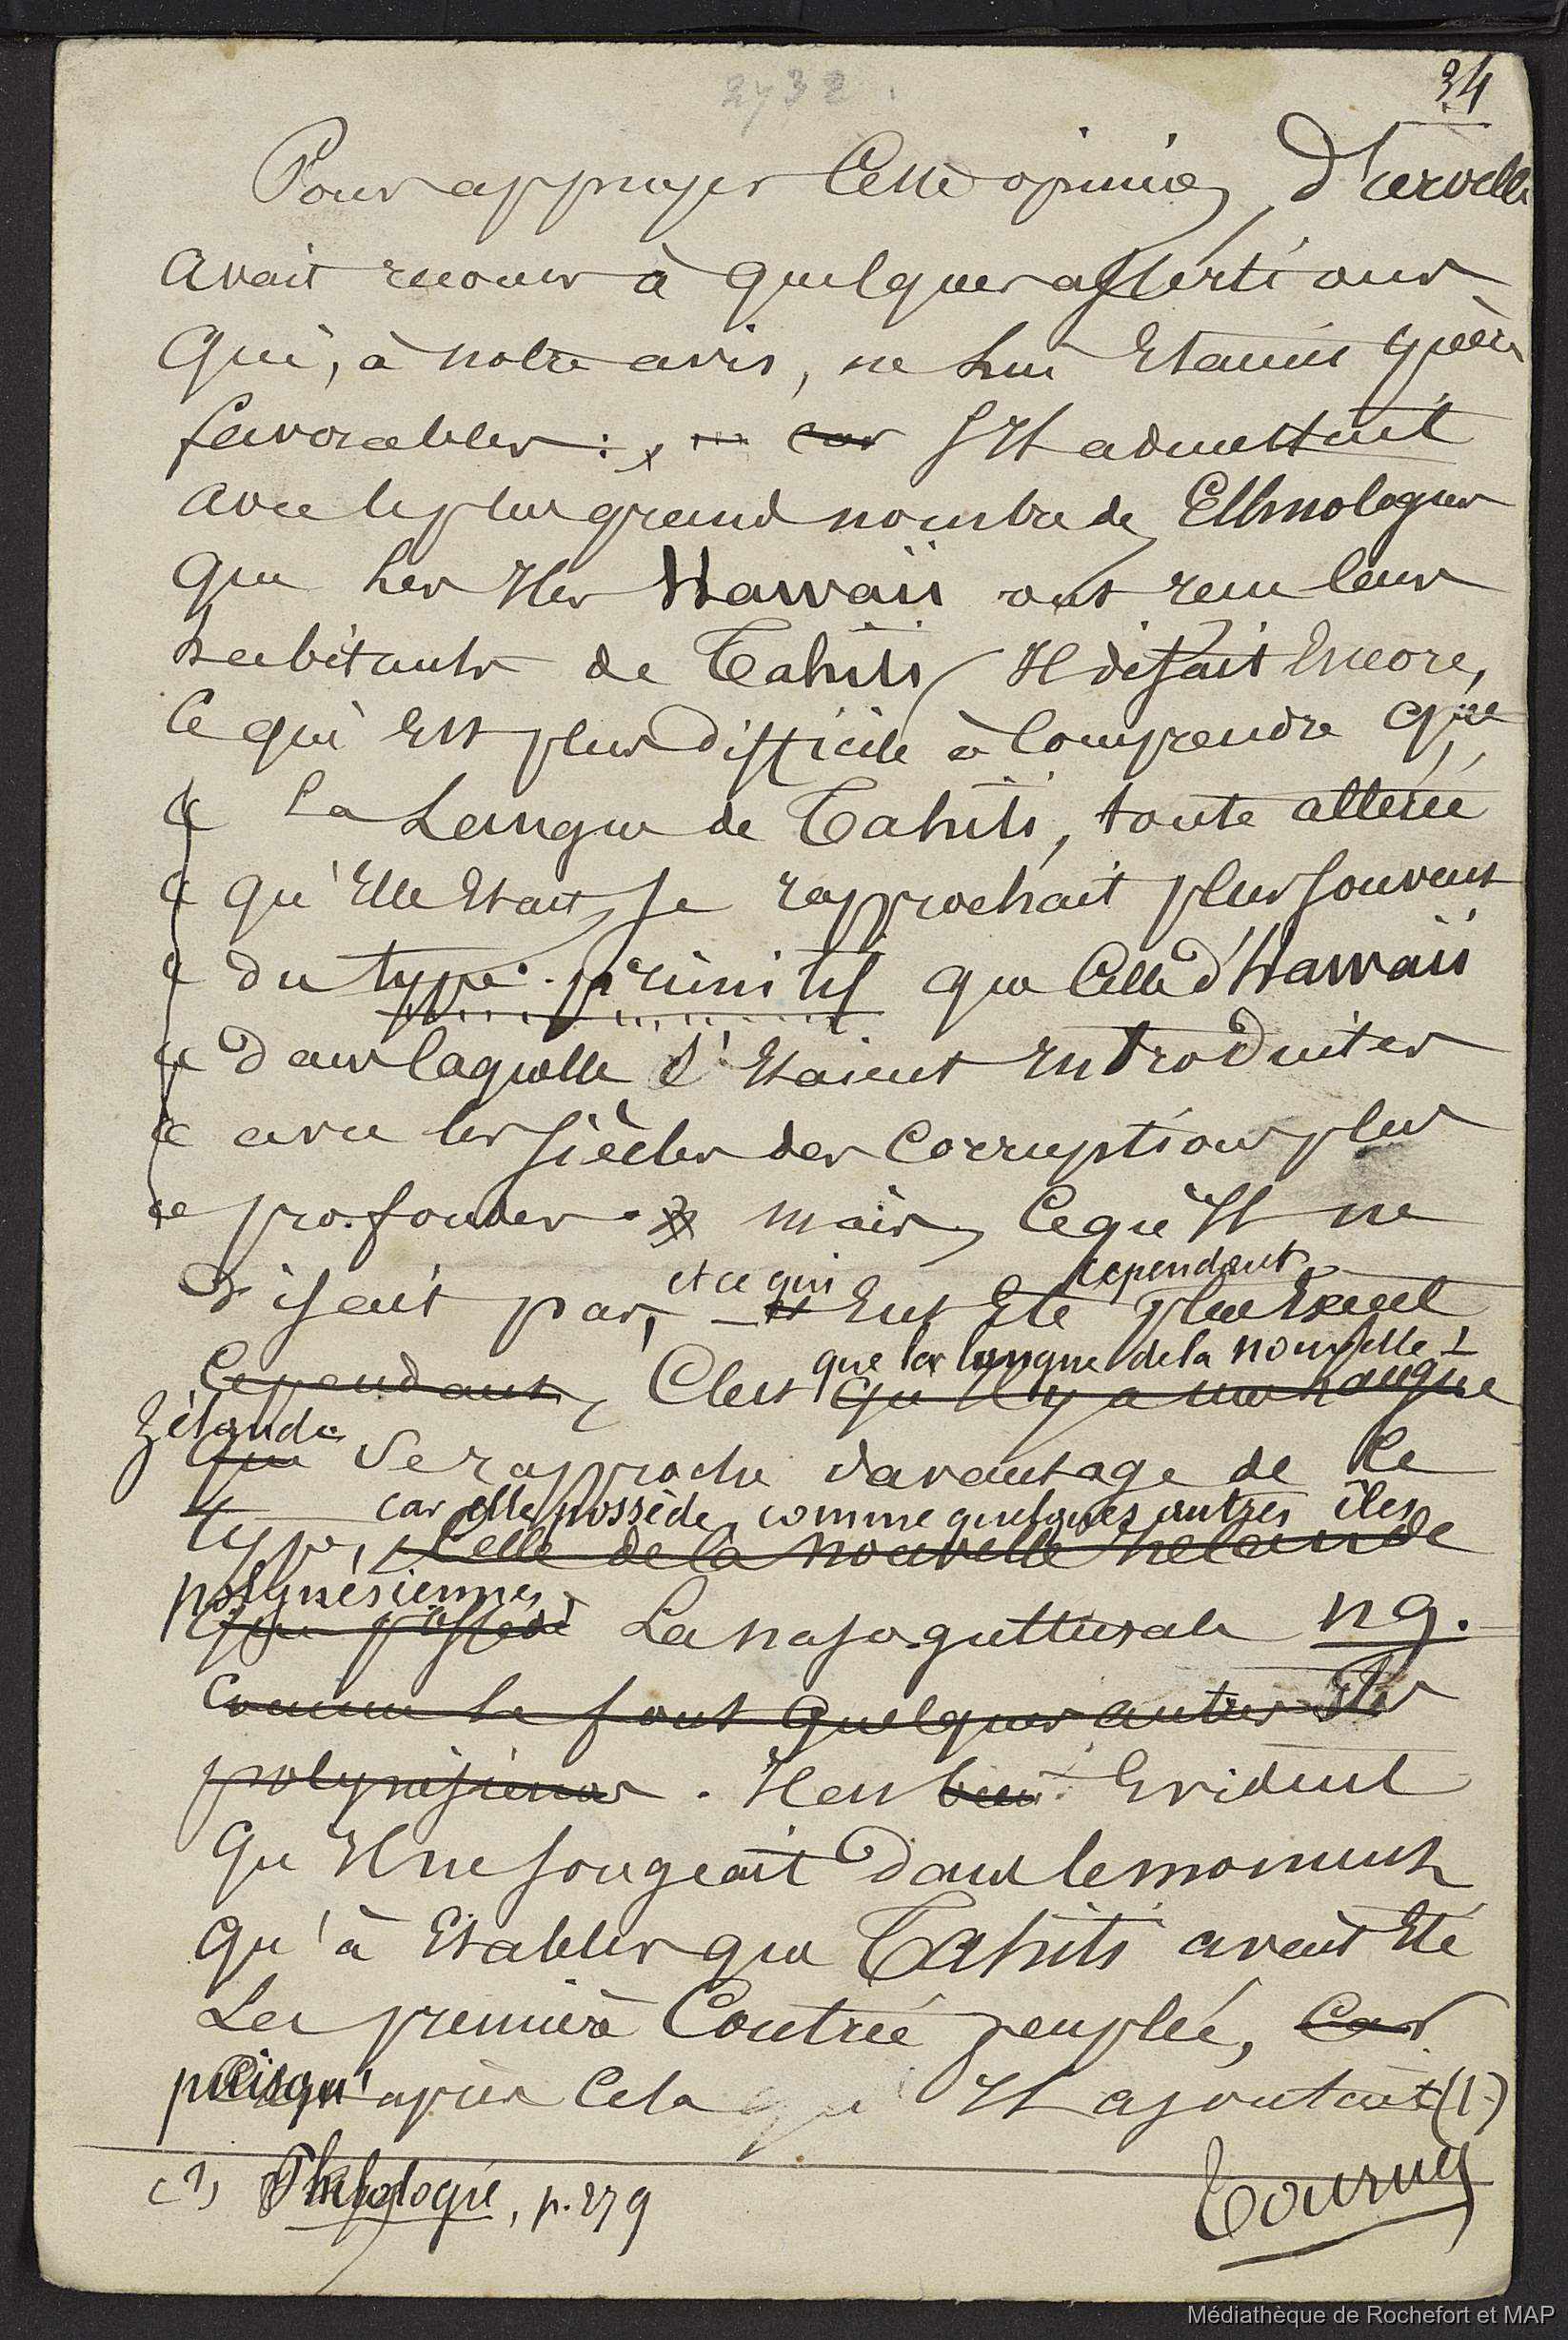 2732
34
Pour appuyer cette opinion, d'Urville
avait recours à quelques assertions
qui, à notre avis, ne lui étaient guère
favorables : car Il admettait
avec le plus grand nombre de Ethnologues
que les Iles Hawaii ont reçu leurs
habitants de Tahiti, Il disait encore,
ce qui est plus difficile à comprendre que
« la Langue de Tahiti, toute altérée
« qu'elle était, se rapprochait plus souvent
« du type primitif que celle d'Hawaii
« dans laquelle s'étaient introduites
« avec les siècles des corruptions plus
« profondes. mais, ce qu'Il ne
disait pas, et ce qui eut été cependant plus Exact
Cependant, C'est que la langue de la nouvelle qu'il y a une langue
Zélande qui se rapproche davantage de ce
type, car elle possède, comme quelques autres îles celle de la nouvelle Zélande
polynésiennes, qui possède La naso-gutturale ng.
comme le font quelques autres Iles
polynésiennes. Il est bien Evident
qu'Il ne songeait dans le moment
qu'à Etablir que Tahiti avait été
La première Contrée peuplée, Car
puisqu'après Cela qu' Il ajoutait (1)
(1) Philologie, p. 279
Tournez
Médiathèque de Rochefort et MAP